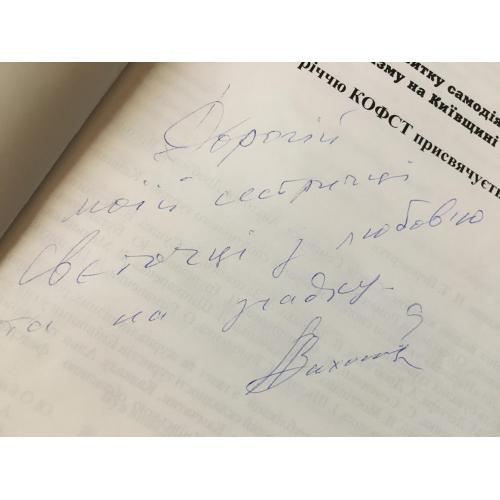 витку самодія
изму на Київщині
річчю КОФСТ присвячуєть
Дорогій
моїй сестричці
Свєточці з любовю
та на згадку.